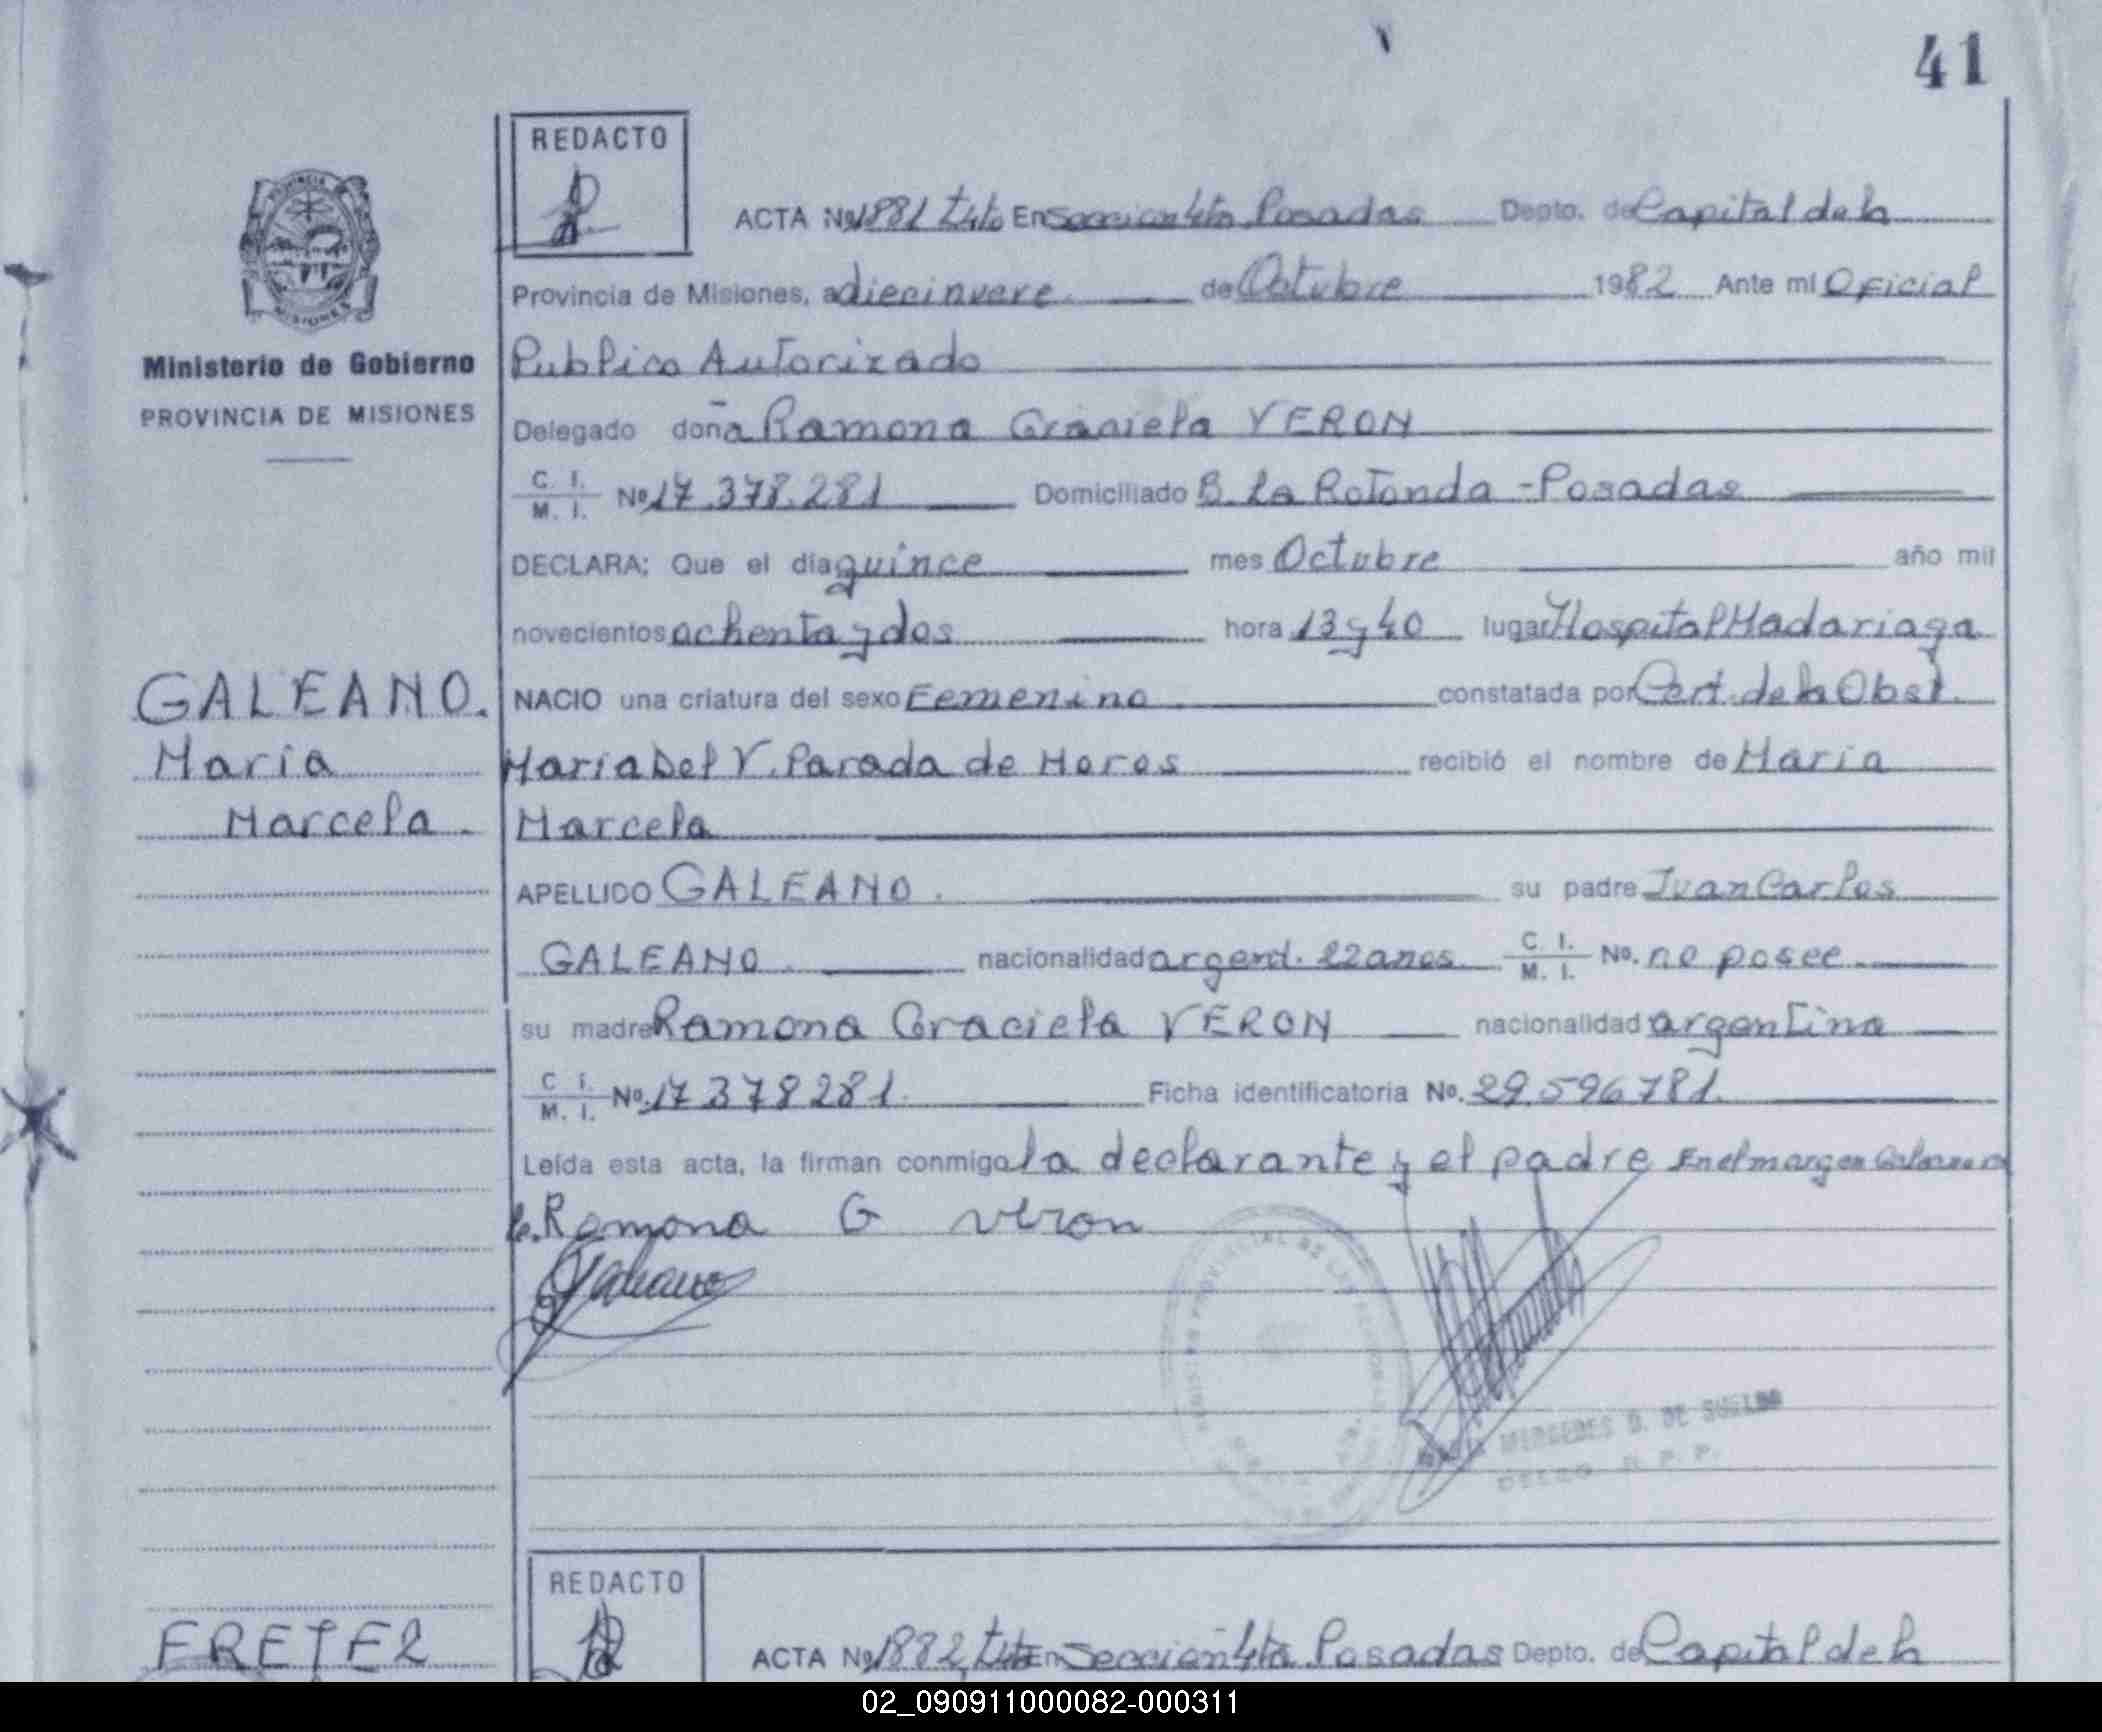 41
REDACTO
ACTA Nº 1881 T4to En Sección 4ta Posadas Depto. de Capital de la
Provincia de Misiones, a diecinueve de Octubre 1982 Ante mí Oficial
Ministerio de Gobierno
PROVINCIA DE MISIONES
Publico Autorizado
Delegado doña Ramona Graciela VERON
C. I. M. I. Nº 17.378.281 Domiciliado B. La Rotonda - Posadas
DECLARA: Que el día quince mes Octubre año mil
novecientos ochenta y dos hora 13 y 40 lugar Hospital Madariaga
GALEANO.
María
Marcela.
NACIO una criatura del sexo Femenino constatada por Cert. de la Obst.
Maria Del V. Parada de Mores recibió el nombre de María
Marcela
APELLIDO GALEANO. su padre Juan Carlos
GALEANO. nacionalidad argent. 22 anos C. I. M. I. No. no posee
su madre Ramona Graciela VERON nacionalidad argentina
C. I. M. I. Nº 17 378 281. Ficha identificatoria No. 29.596.781.
Leída esta acta, la firman conmigo la declarante y el padre En el margen Galeano
Ramona G veron
Galeano
MERCEDES D. DE SUELDO
REDACTO
FRETEZ
ACTA Nº 1882, T4to En Sección 4ta Posadas Depto. de Capital de la
02_090911000082-000311